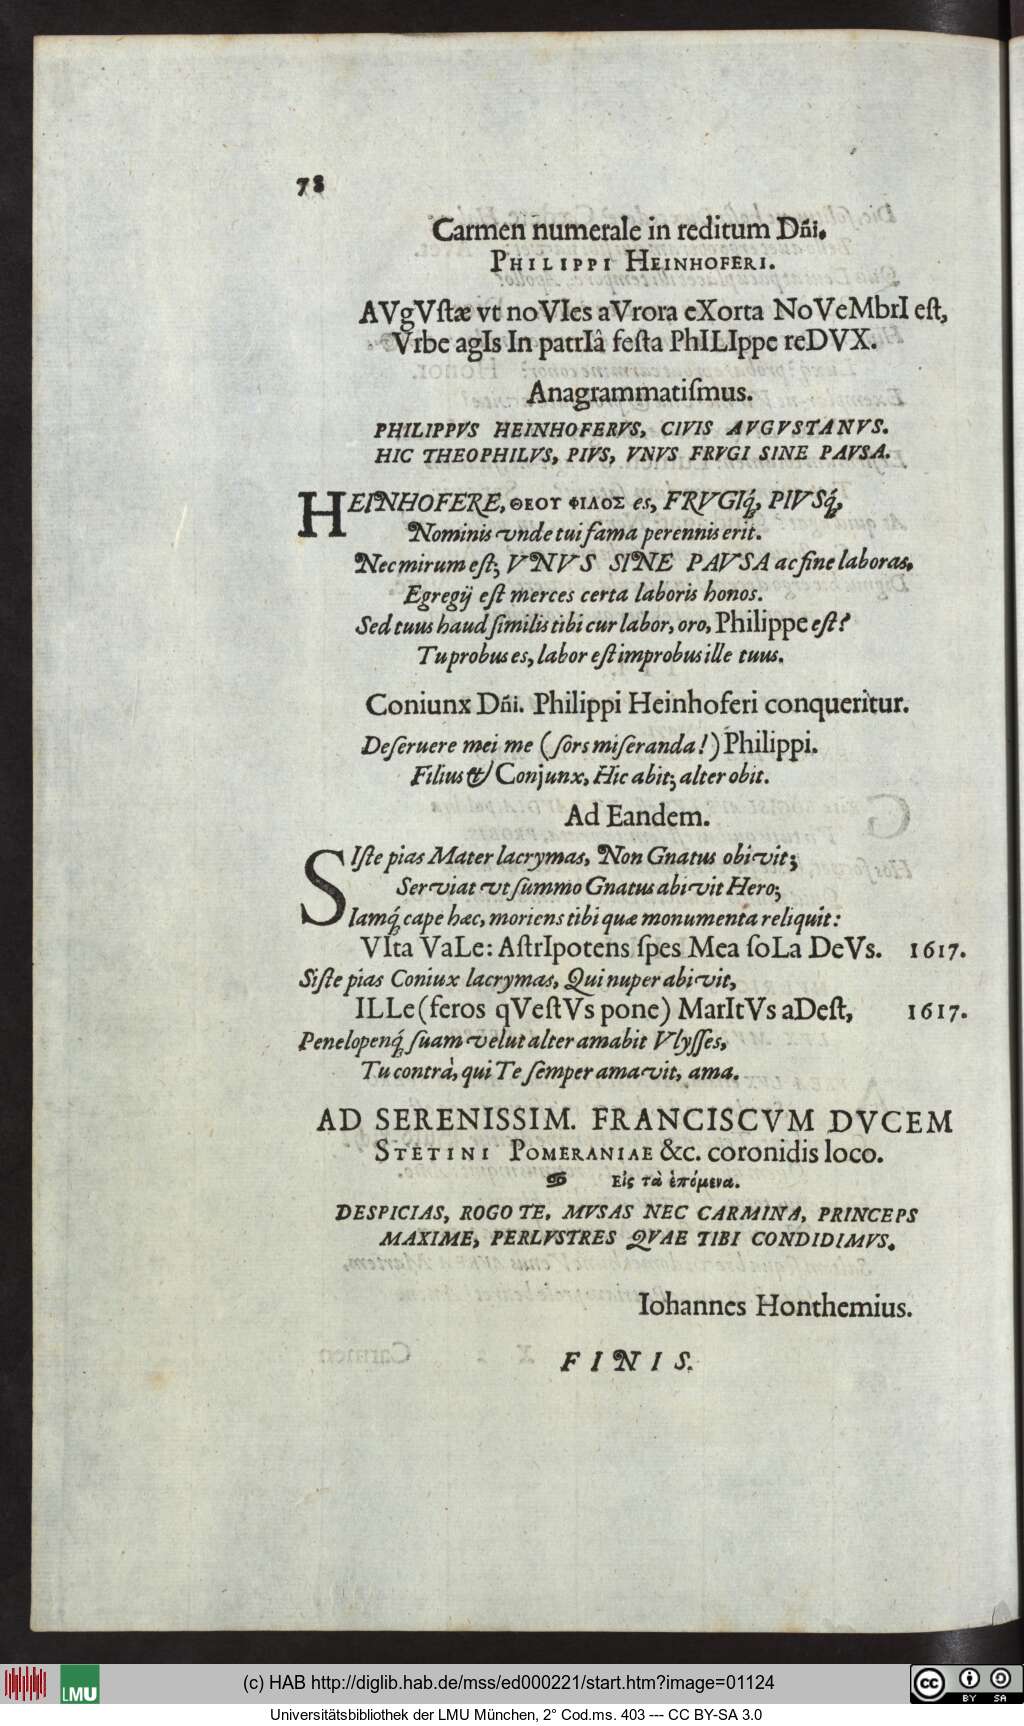 78
Carmen numerale in reditum Dñi.
PHILIPPI HEINHOFERI.
AVgVſtæ vt noVIes aVrora eXorta NoVeMbrI eſt,
Vrbe agIs In patrIâ feſta PhILIppe reDVX.
Anagrammatiſmus.
PHILIPPVS HEINHOFERVS, CIVIS AVGVSTANVS.
HIC THEOPHILVS, PIVS, VNVS FRVGI SINE PAVSA.
HEINHOFERE, ΘΕΟΥ ΦΙΛΟΣ es, FRVGIq́, PIVSq́,
Nominis vnde tui fama perennis erit.
Nec mirum eſt; VNVS SINE PAVSA ac fine laboras,
Egregij eſt merces certa laboris honos.
Sed tuus haud ſimilis tibi cur labor, oro, Philippe eſt?
Tu probus es, labor eſt improbus ille tuus.
Coniunx Dñi. Philippi Heinhoferi conqueritur.
Deſeruere mei me (ſors miſeranda!) Philippi.
Filius & Conjunx, Hic abit; alter obit.
Ad Eandem.
SIſte pias Mater lacrymas, Non Gnatus obivit;
Serviat vt ſummo Gnatus abivit Hero;
Iamq́ cape hæc, moriens tibi quæ monumenta reliquit:
VIta VaLe: AſtrIpotens ſpes Mea ſoLa DeVs. 1617.
Siſte pias Coniux lacrymas, Qui nuper abivit,
ILLe (feros qVeſtVs pone) MarItVs aDeſt, 1617.
Penelopenq́ ſuam velut alter amabit Vlyſſes,
Tu contrà, qui Te ſemper amavit, ama.
AD SERENISSIM. FRANCISCVM DVCEM
STETINI POMERANIAE &c. coronidis loco.
Εἰς τὰ ἑπόμενα.
DESPICIAS, ROGO TE, MVSAS NEC CARMINA, PRINCEPS
MAXIME, PERLVSTRES QVAE TIBI CONDIDIMVS.
Iohannes Honthemius.
FINIS.
LMU
(c) HAB http://diglib.hab.de/mss/ed000221/start.htm?image=01124
Universitätsbibliothek der LMU München, 2° Cod.ms. 403 --- CC BY-SA 3.0
cc BY SA